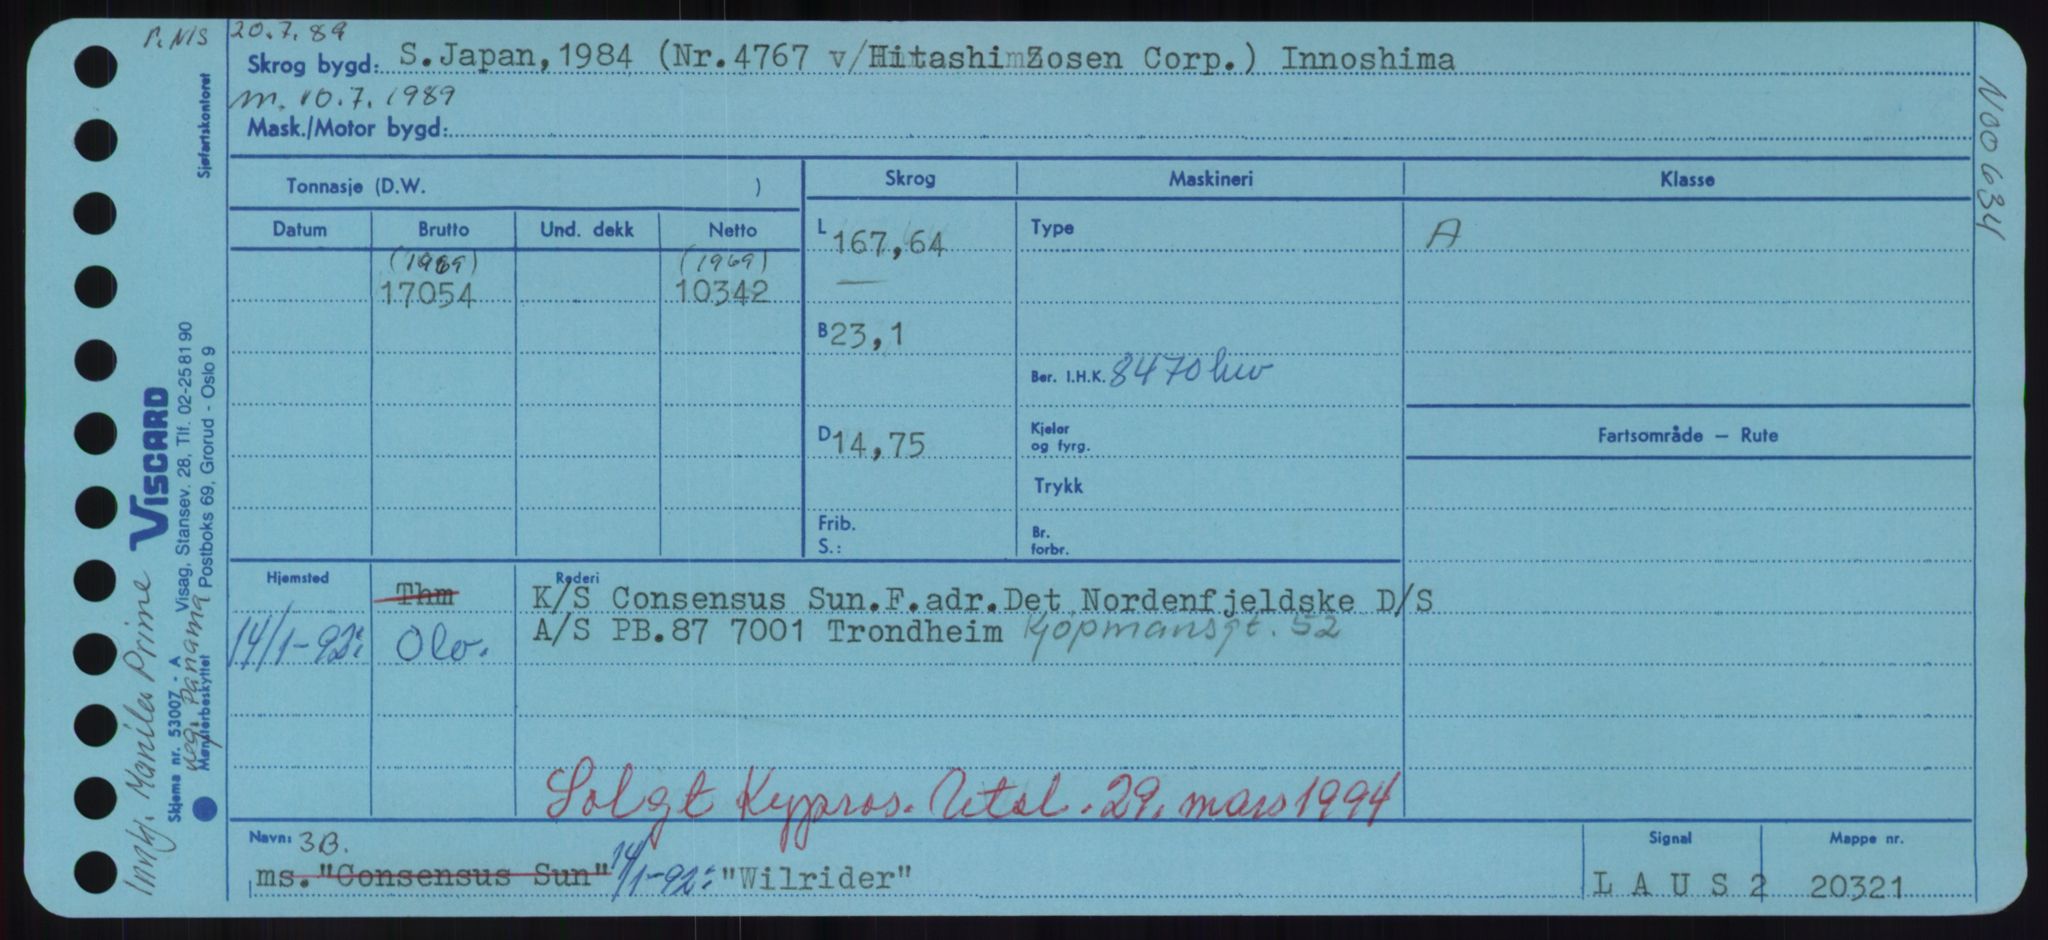 20.7.89
Skrog bygd: S.Japan, 1984 (Nr. 4767 v/Hitashi Zosen Corp.) Innoshima
m. 10.7.1989
Mask./Motor bygd:
N00634
Tonnasje (D.W. )
Skrog Maskineri Klasse
Datum Brutto Und. dekk Netto
L 167,64 Type A
(1969) (1969)
17054 10342
B 23,1
Ber. I.H.K. 8470 kw
D 14,75 Kjeler og fyrg.
Fartsområde – Rute
Trykk
Frib. S.: Br. forbr.
Hjemsted Rederi
Thm K/S Consensus Sun. F.adr. Det Nordenfjeldske D/S
14/1-92: Olo. A/S PB. 87 7001 Trondheim Kjøpmansgt. 52
Solgt Kypros. Utsl. 29. mars 1994
Navn: 3B. Signal Mappe nr.
ms. "Consensus Sun" 14/1-92: "Wilrider" L A U S 2 20321
Innk. Manila Prime
VISCARD
Sjøfartskontoret
Skjema nr. 53007 - A Visag, Stansev. 28, Tlf. 02-25 81 90
reg. Panama
Mønsterbeskyttet Postboks 69, Grorud - Oslo 9